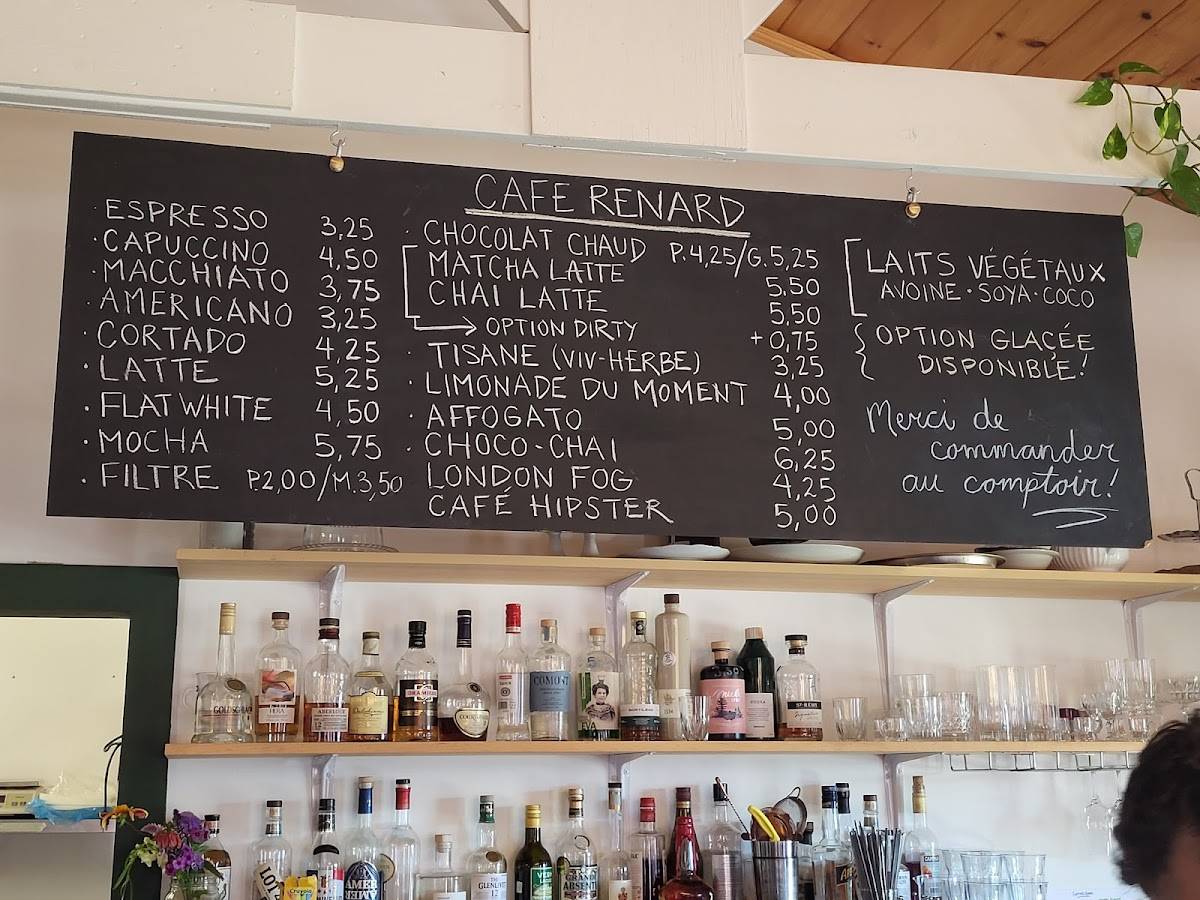 CAFE RENARD
· ESPRESSO 3,25
· CAPUCCINO 4,50
· MACCHIATO 3,75
· AMERICANO 3,25
· CORTADO 4,25
· LATTE 5,25
· FLAT WHITE 4,50
· MOCHA 5,75
· FILTRE P.2,00/M.3,50
· CHOCOLAT CHAUD P.4,25/G.5,25
MATCHA LATTE 5,50
CHAI LATTE 5,50
→ OPTION DIRTY +0,75
· TISANE (VIV-HERBE) 3,25
· LIMONADE DU MOMENT 4,00
· AFFOGATO 5,00
· CHOCO-CHAI 6,25
· LONDON FOG 4,25
CAFÉ HIPSTER 5,00
LAITS VÉGÉTAUX
AVOINE · SOYA · COCO
OPTION GLACÉE
DISPONIBLE!
Merci de
commander
au comptoir!
ST-RÉMY
GLENLIVET
12
GRAND
ABSENTE